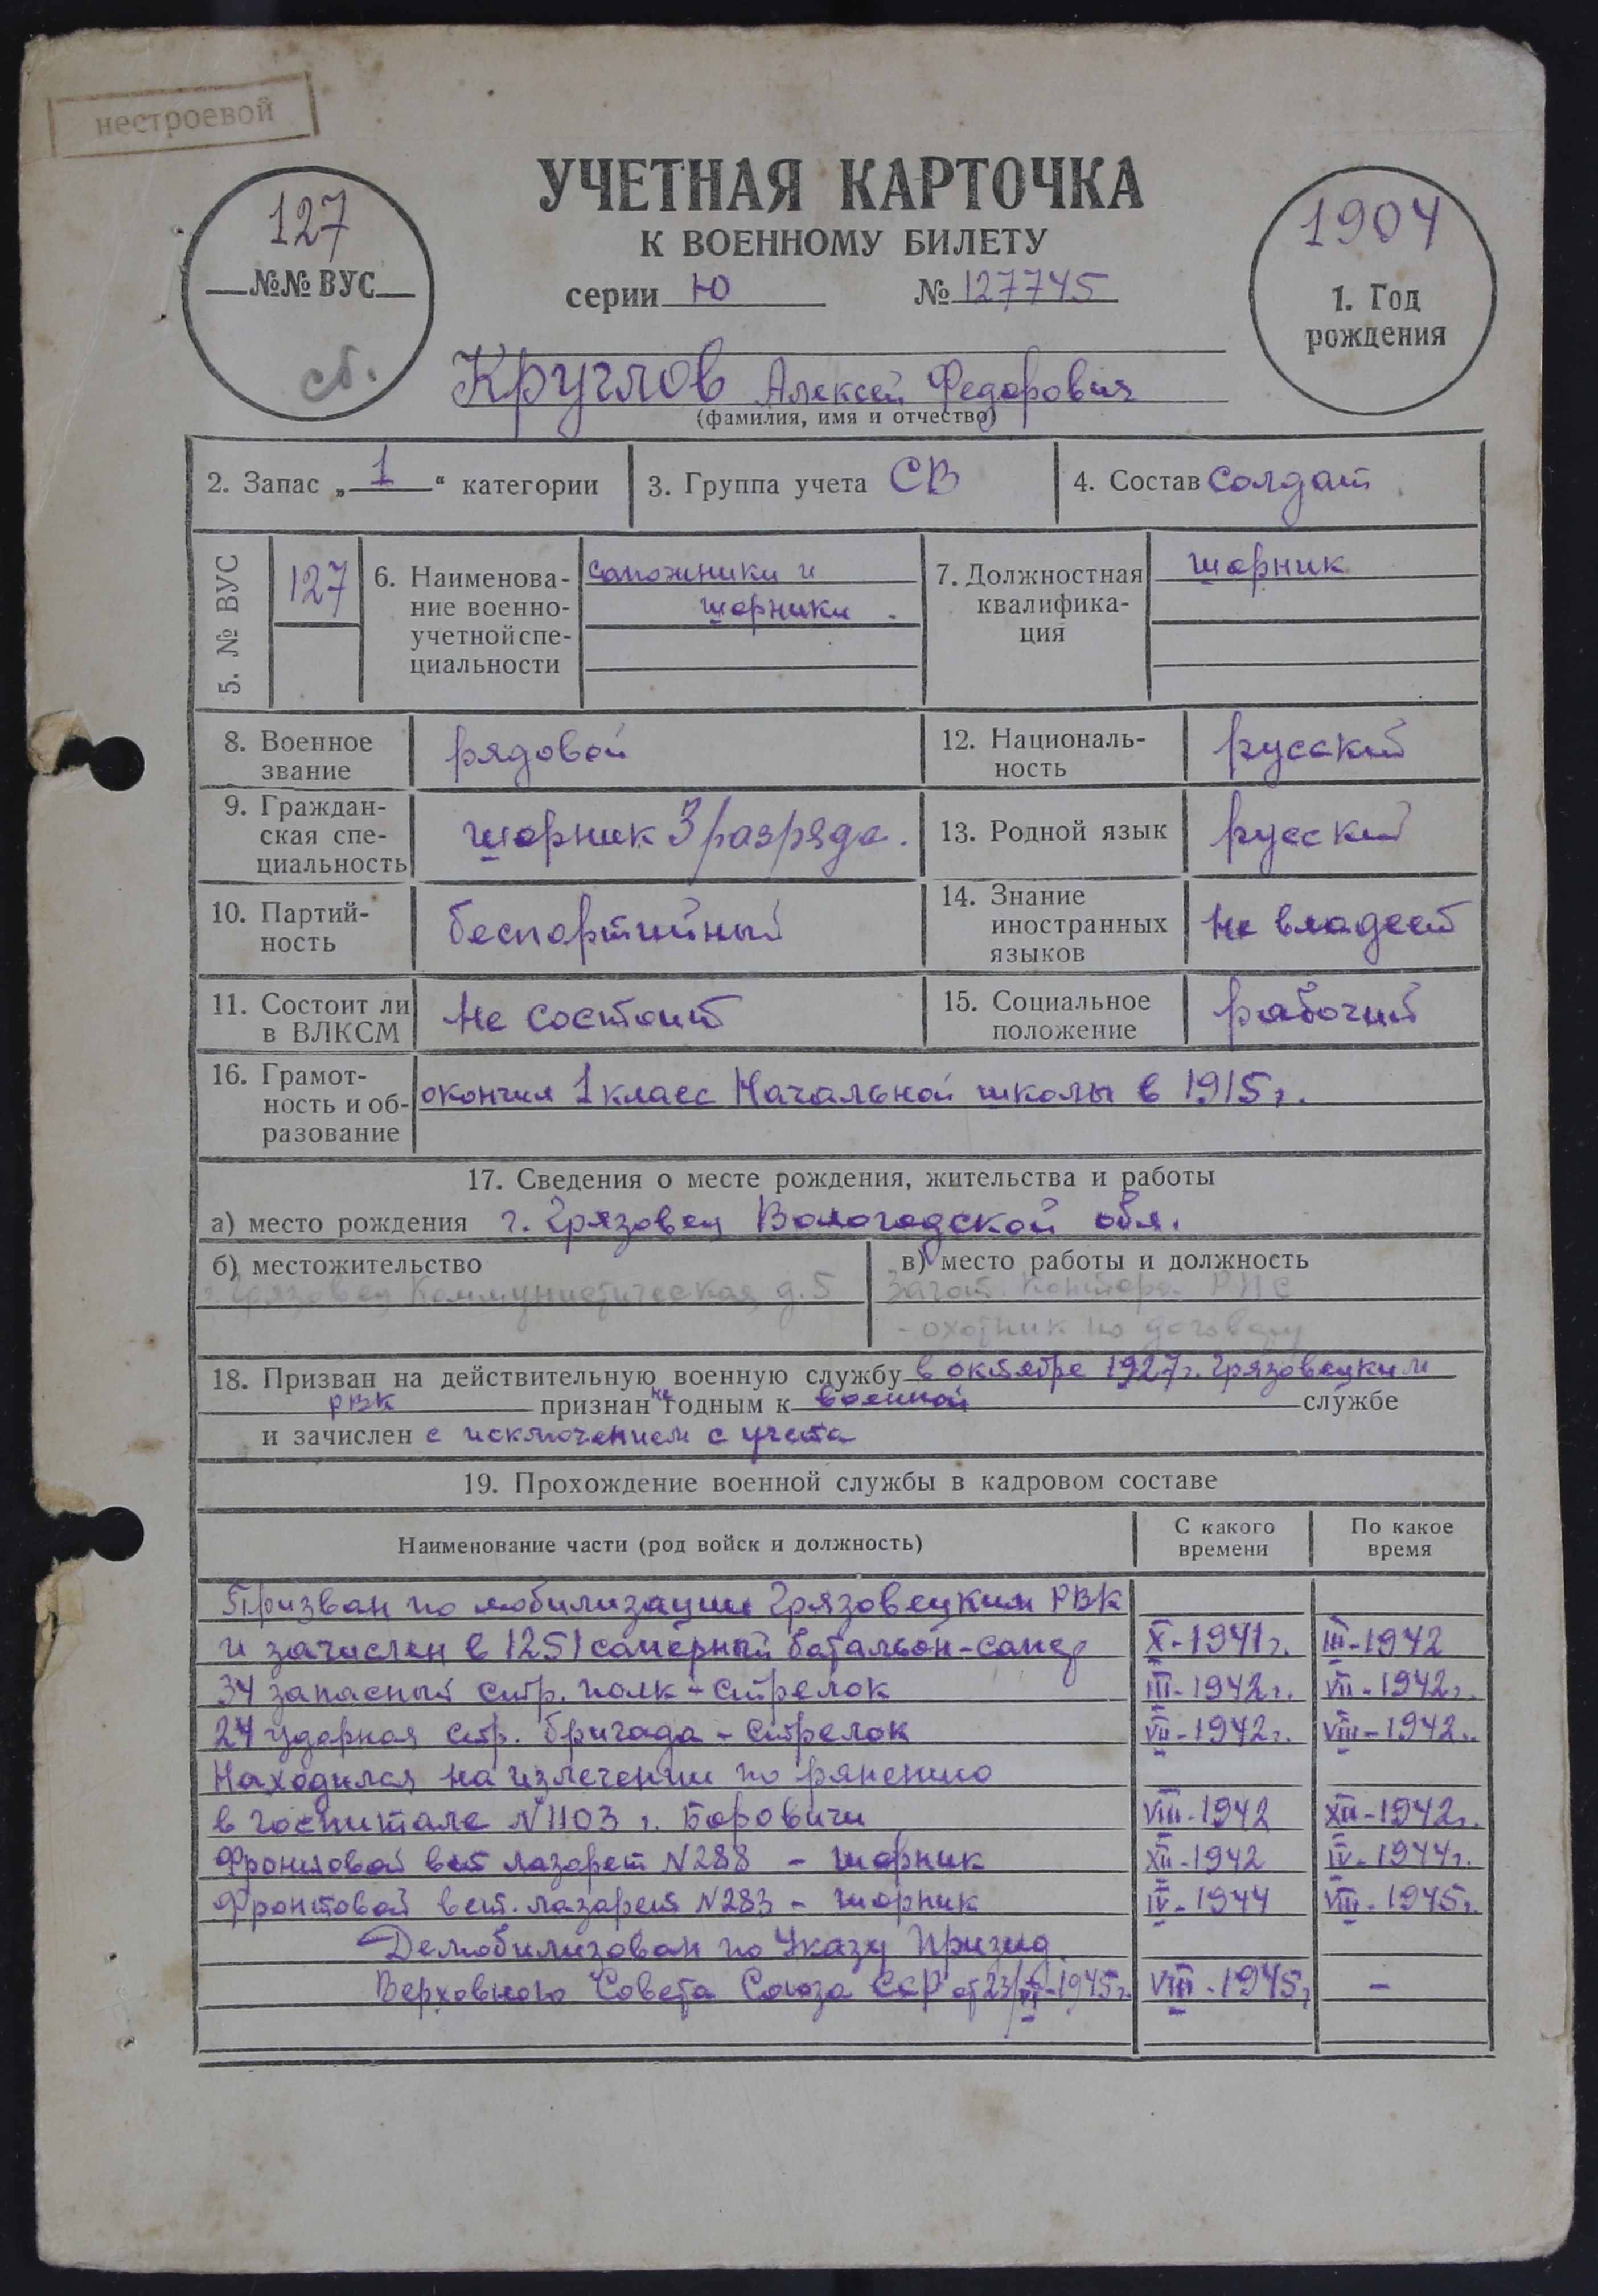 нестроевой
УЧЕТНАЯ КАРТОЧКА
К ВОЕННОМУ БИЛЕТУ
серии Ю № 127745
127
№№ ВУС
сб.
1904
1. Год
рождения
Круглов Алексей Федорович
(фамилия, имя и отчество)
2. Запас „1“ категории
3. Группа учета СВ
4. Состав солдат
5. № ВУС
127
6. Наименова-
ние военно-
учетной спе-
циальности
сапожники и
шорники
7. Должностная
квалифика-
ция
шорник
8. Военное
звание
рядовой
12. Националь-
ность
русский
9. Граждан-
ская спе-
циальность
шорник 3 разряда.
13. Родной язык
русский
10. Партий-
ность
беспартийный
14. Знание
иностранных
языков
не владеет
11. Состоит ли
в ВЛКСМ
не состоит
15. Социальное
положение
рабочий
16. Грамот-
ность и об-
разование
окончил 1 класс Начальной школы в 1915 г.
17. Сведения о месте рождения, жительства и работы
а) место рождения г. Грязовец Вологодской обл.
б) местожительство
г. Грязовец Коммунистическая д. 5
в) место работы и должность
Загот. контора РПС
- охотник по договору
18. Призван на действительную военную службу в октябре 1927 г. Грязовецким
РВК признан не годным к военной службе
и зачислен с исключением с учета
19. Прохождение военной службы в кадровом составе
Наименование части (род войск и должность)
С какого
времени
По какое
время
Призван по мобилизации Грязовецким РВК
и зачислен в 1251 саперный батальон-сапер X-1941 г. III-1942
34 запасный стр. полк - стрелок III-1942 г. VII-1942 г.
24 ударная стр. бригада - стрелок VII-1942 г. VIII-1942 г.
Находился на излечении по ранению
в госпитале N 1103 г. Боровичи VIII-1942 XII-1942 г.
Фронтовой вет лазарет N 288 - шорник XII-1942 IV-1944 г.
Фронтовой вет. лазарет N 283 - шорник IV-1944 VIII-1945 г.
Демобилизован по Указу Призид.
Верховного Совета Союза ССР от 23/VI-1945 г. VIII-1945 г -